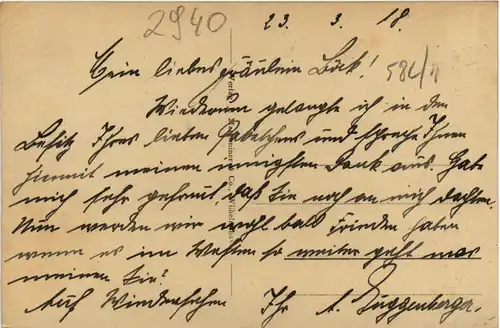 2940
23. 3. 18.
Mein liebes Fräulein Böck!
Wiederum gelangte ich in den
Besitz Ihres lieben Paketchens und spreche Ihnen
hiermit meinen innigsten Dank aus. Habe
mich sehr gefreut, daß Sie noch an mich dachten.
Nun werden wir wohl bald Frieden haben
wenn es im Westen so weiter geht was
meinen Sie?
Auf Wiedersehen Ihr A. Guggenberger.